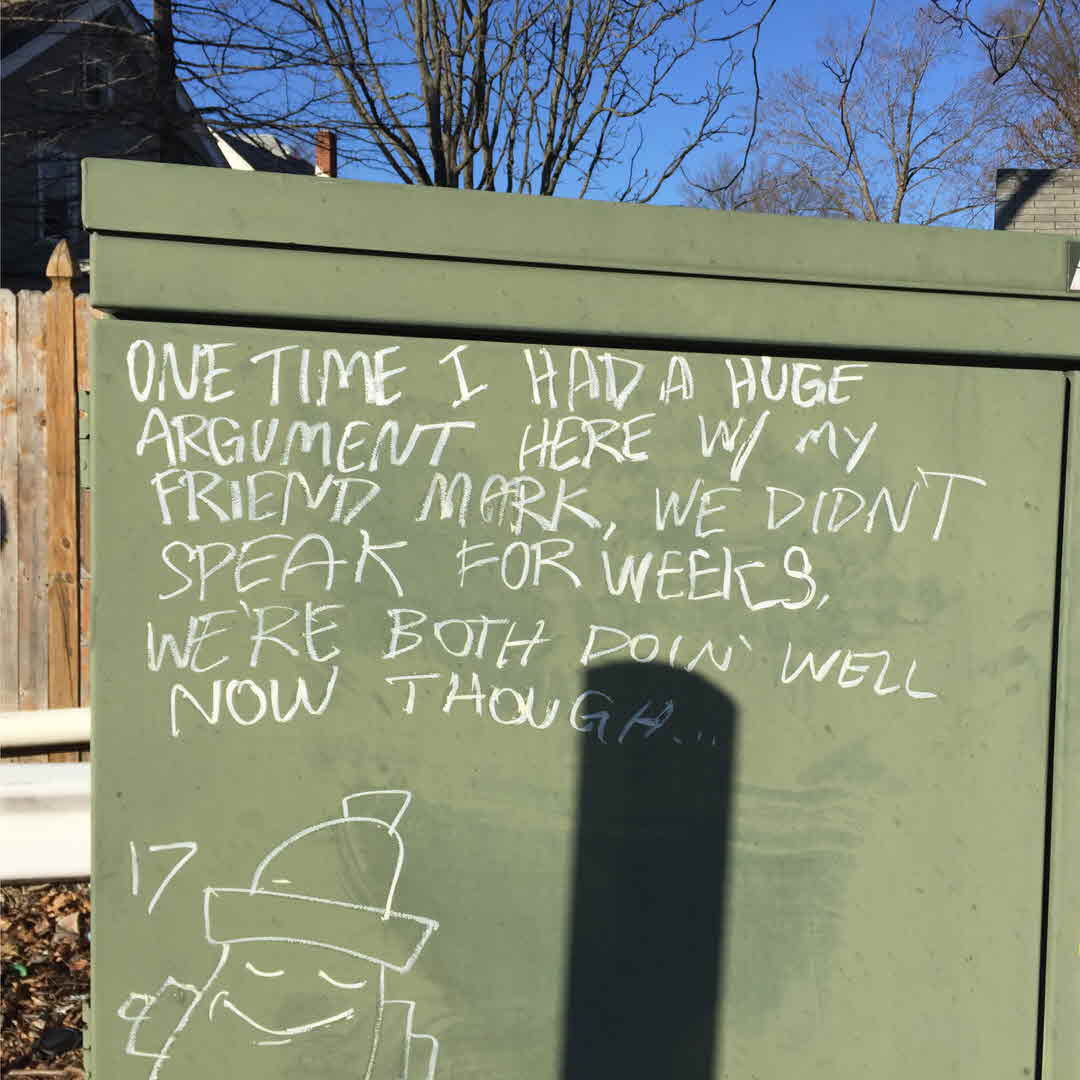 ONE TIME I HAD A HUGE
ARGUMENT HERE W/ MY
FRIEND MARK, WE DIDN'T
SPEAK FOR WEEKS,
WE'RE BOTH DOIN' WELL
NOW THOUGH...
17